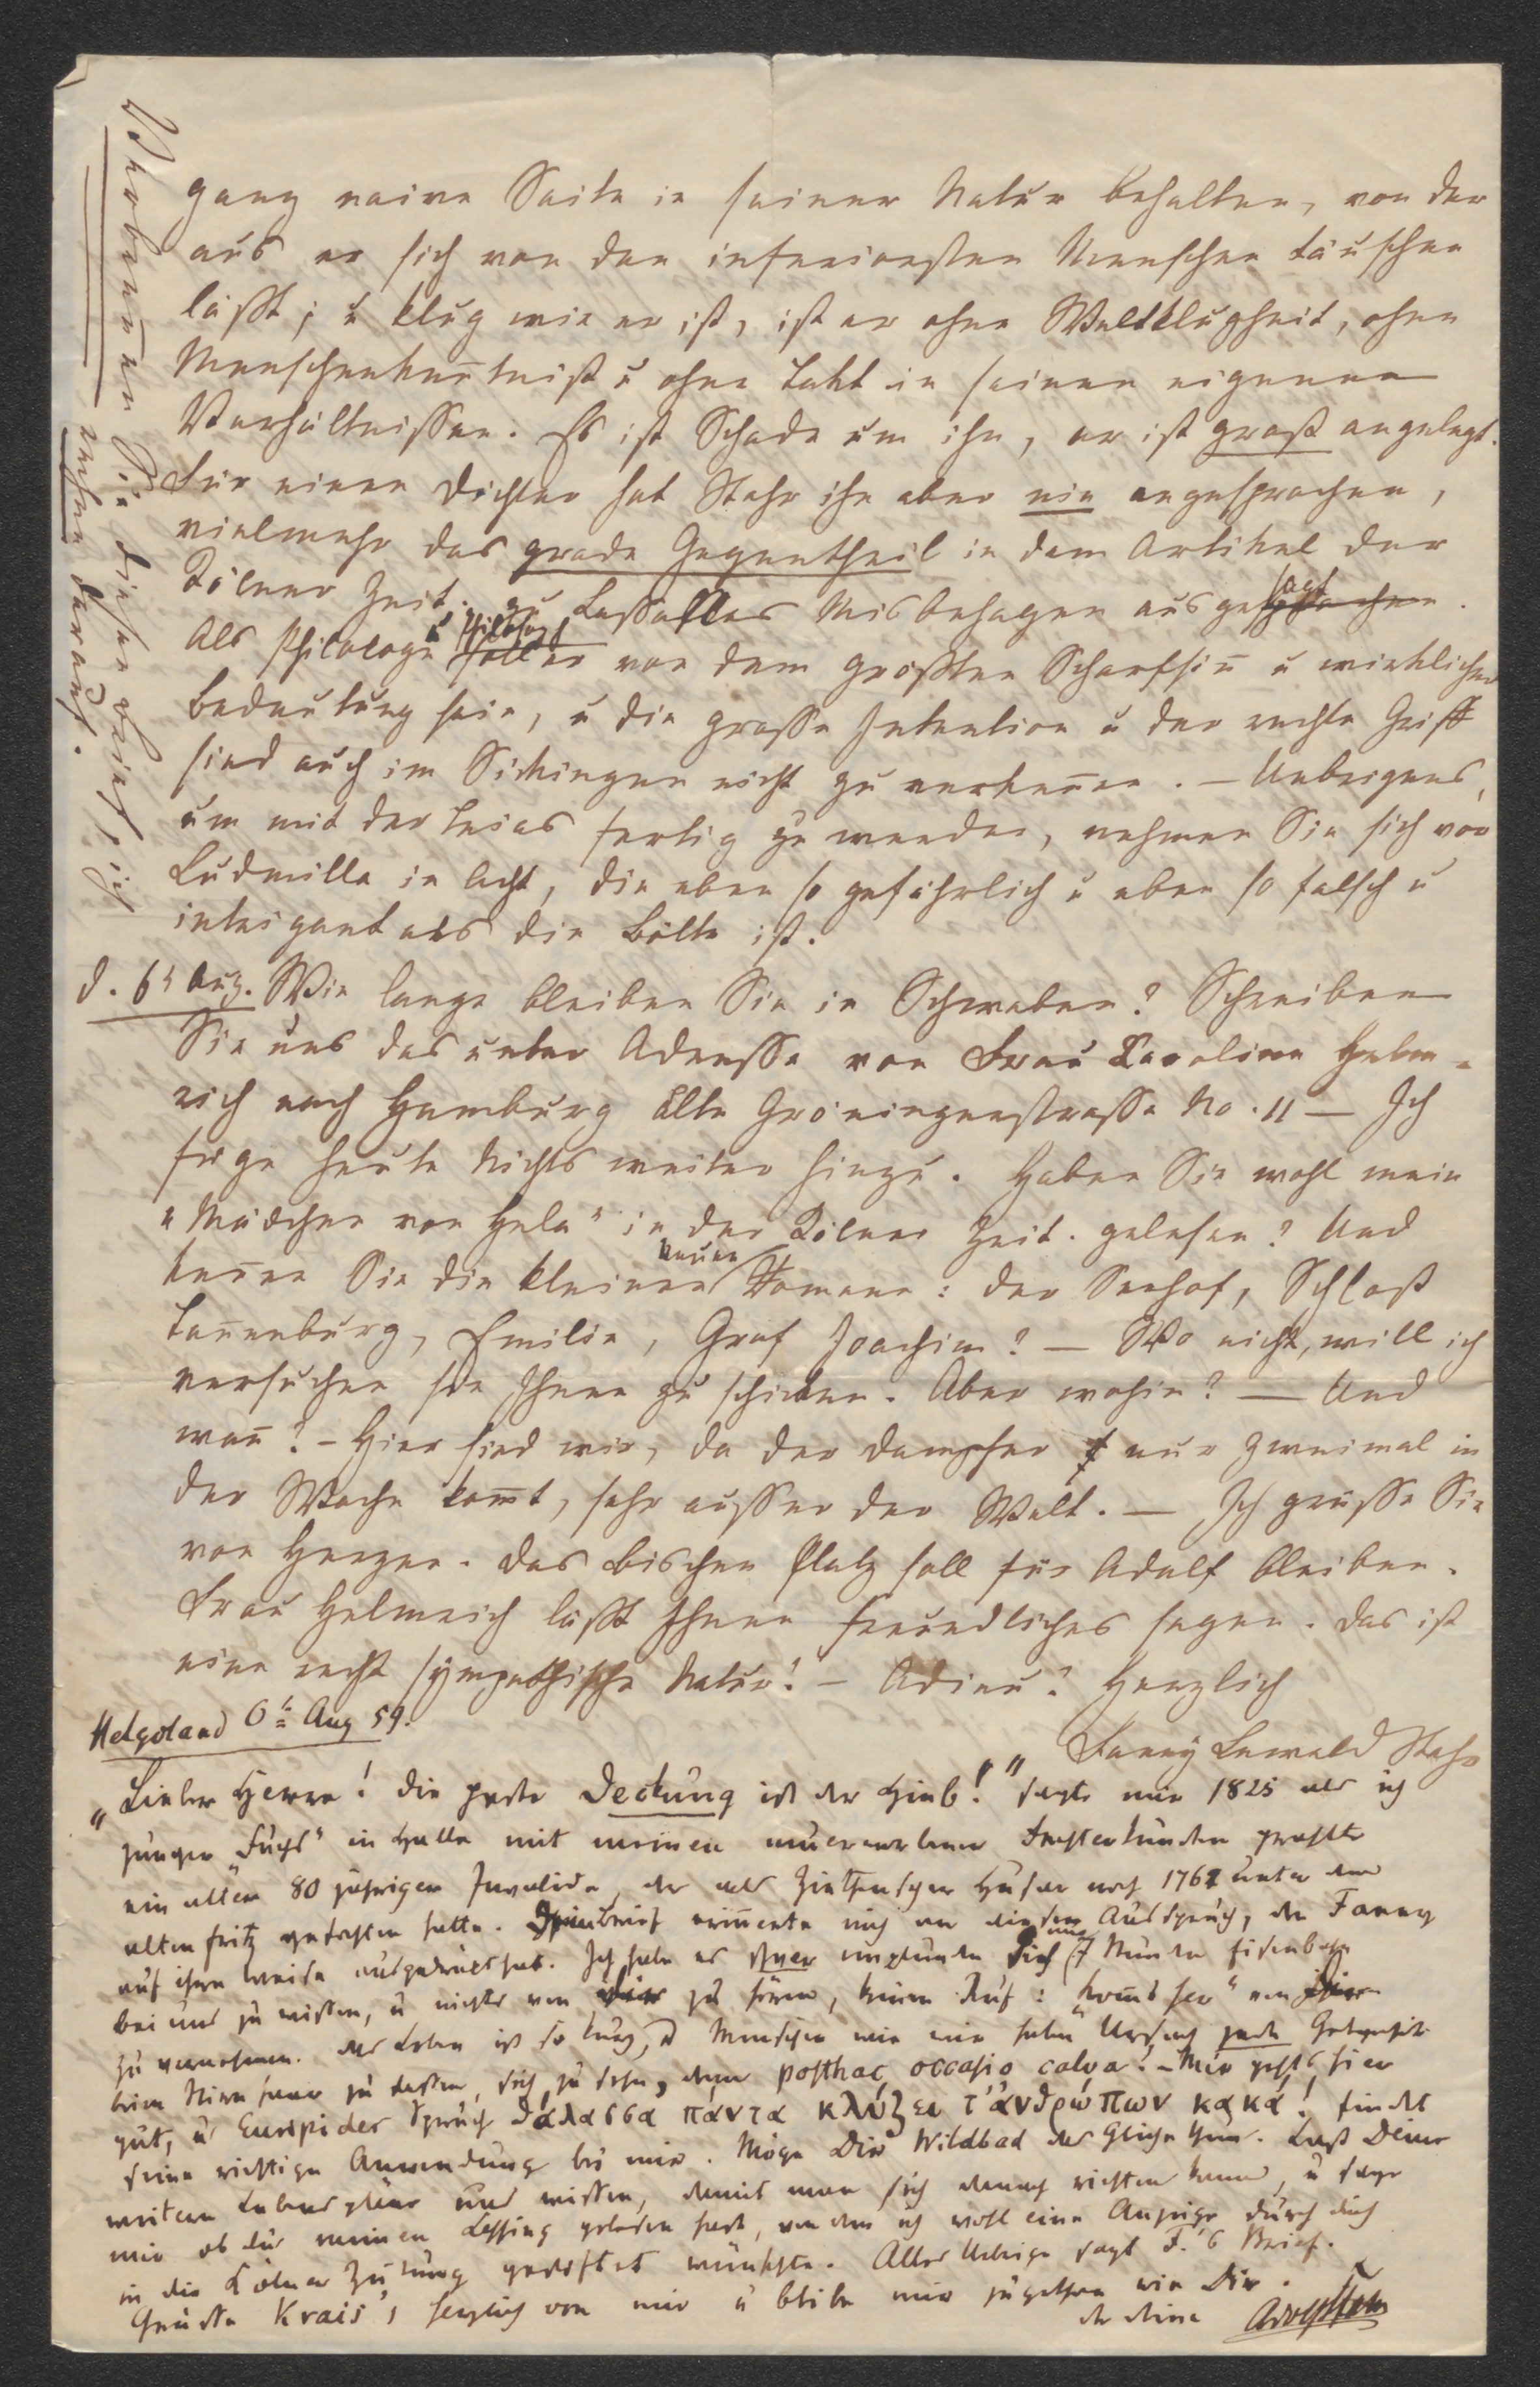 ganz naive Seite in seiner Natur behalten, von der
aus er sich von den inferiorsten Menschen täuschen
läßt; u klug wie er ist, ist er ohne Weltklugheit, ohne
Menschenkenntniß u ohne Takt in seinen eigenen
Verhältnissen. Es ist Schade um ihn, er ist groß angelegt.
Für einen Dichter hat Stahr ihn aber nie angesprochen,
vielmehr das grade Gegentheil in dem Artikel der
Kölner Zeit. zu Lassalles Misbehagen ausgesagt.
Als Philologe u Philosoph soll er von dem größten Scharfsin̄ u wirklicher
Bedeutung sein, u die grosse Intention u der rechte Griff
sind auch im Sickingen nicht zu verken̄en. – Uebrigens,
um mit der Trias fertig zu werden, nehmen Sie sich vor
Ludmilla in Acht, die eben so gefährlich u eben so falsch u
intrigant als die Bölte ist.
d. 6t Aug. Wie lange bleiben Sie in Schwaben? Schreiben
Sie uns das unter Adresse von Frau Caroline Helm-
rich nach Hamburg Alte Gröningerstrasse No. 11 – Ich
füge heute Nichts weiter hinzu. Haben Sie wohl mein
"Mädchen von Hela" in der Kölner Zeit. gelesen? Und
ken̄en Sie die kleinen neuen Romane: Der Seehof, Schloß
Tan̄enburg, Emilie, Graf Joachim? – Wo nicht, will ich
versuchen sie Ihnen zu schicken. Aber wohin? – Und
wan̄? – Hier sind wir, da der Dampfer nur zweimal in
der Woche kom̄t, sehr ausser der Welt. – Ich grüsse Sie
von Herzen. Das Bischen Platz soll für Adolf bleiben.
Frau Helmrich läßt Ihnen freundliches sagen. Das ist
eine recht sympathische Natur! – Adieu! Herzlich
Fanny Lewald Stahr
Helgoland 6t Aug 59.
"Lieber Herre! die beste Deckung ist der Hieb!" sagte mir 1825 als ich
junger "Fuchs" in Halle mit meinen neuerworbenen Fechterkünsten prahlte
ein alter 80 jähriger Invalide, der als Ziethenscher Husar noch 1761 unter dem
alten Fritz gefochten hatte. Dein Brief erin̄erte mich an diesen Ausspruch, den Fanny
auf ihre Weise ausgedrückt hat. Ich habe es schwer empfunden Dich nur 7 Stunden Eisenbahn
bei uns zu wissen, u nichts von Dir zu hören, keinen Ruf: "kom̄t her" von Dir
zu vernehmen. Das Leben ist so kurz, Menschen wie wir haben Ursach jede Gelegenheit
beim Stirnhaar zu fassen, sich zu sehn, denn posthac occasio calva! – Mir gehts hier
gut, u Euripides Spruch θάλασσα πάντα κλύζει τ'ἀνθρώπων κακά! findet
seine richtige Anwendung bei mir. Möge Dir Wildbad das Gleiche thun. Laß Deine
weitern Lebenspläne uns wissen, damit man sich danach richten kann, u sage
mir ob Du meinen Lessing gelesen hast, von dem ich wohl eine Anzeige durch Dich
in die Kölner Zeitung gestiftet wünschte. Alles Uebrige sagt F.'s Brief.
Grüsse Krais's herzlich von mir u bleibe mir zugethan wie Dir
der Deine Adolf Stahr
Verbrennen Sie diesen Brief, ich
rechne darauf.